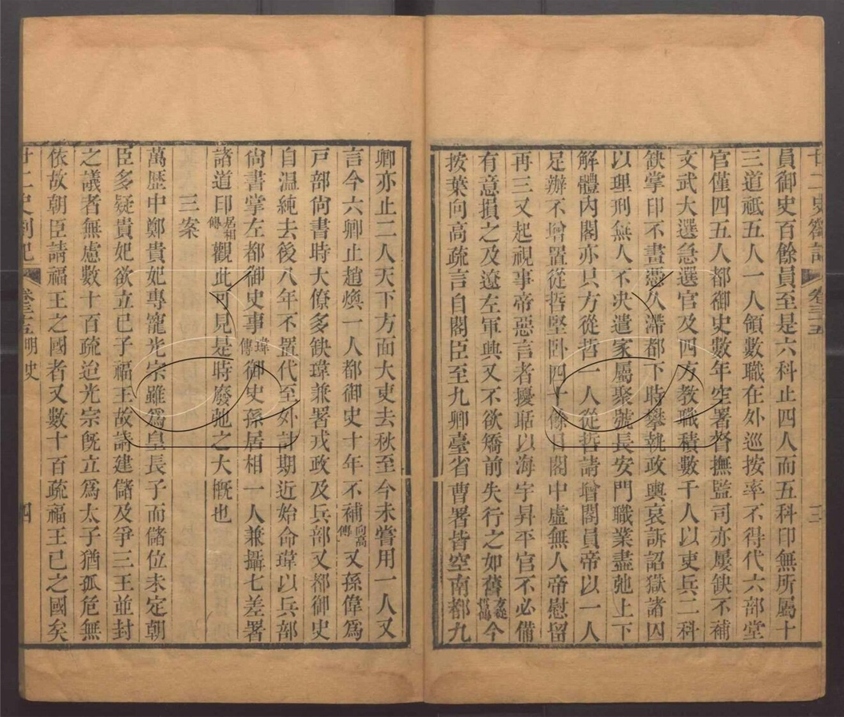 員御史百餘員至是六科止四人而五科印無所屬十
三道祗五人一人領數職在外巡按率不得代六部堂
官僅四五人都御史數年空署督撫監司亦屢缺不補
文武大選急選官及四方教職積數千人以吏兵二科
缺掌印不畫憑久滯都下時攀執政輿哀訴詔獄諸囚
以理刑無人不決遣家屬聚號長安門職業盡弛上下
解體內閣亦只方從哲一人從哲請增閣員帝以一人
足辦不增置從哲堅臥四十餘日閣中虛無人帝慰留
再三又起視事帝惡言者擾聒以海宇昇平官不必備
有意損之及遼左軍興又不欲矯前失行之如舊方從哲傳今
按葉向高疏言自閣臣至九卿臺省曹署皆空南都九
廿二史劄記
卷三十五
三
卿亦止二人天下方面大吏去秋至今未嘗用一人又
言今六卿止趙煥一人都御史十年不補向高傳又孫偉為
戶部尚書時大僚多缺瑋兼署戎政及兵部又都御史
自溫純去後八年不置代至外計期近始命瑋以兵部
尚書掌左都御史事瑋傳御史孫居相一人兼攝七差署
諸道印居相傳觀此可見是時廢弛之大概也
三案
萬歷中鄭貴妃專寵光宗雖爲皇長子而儲位未定朝
臣多疑貴妃欲立己子福王故請建儲及爭三王並封
之議者無慮數十百疏迨光宗旣立爲太子猶孤危無
依故朝臣請福王之國者又數十百疏福王已之國矣
廿二史劄記
卷三十五 明史
四